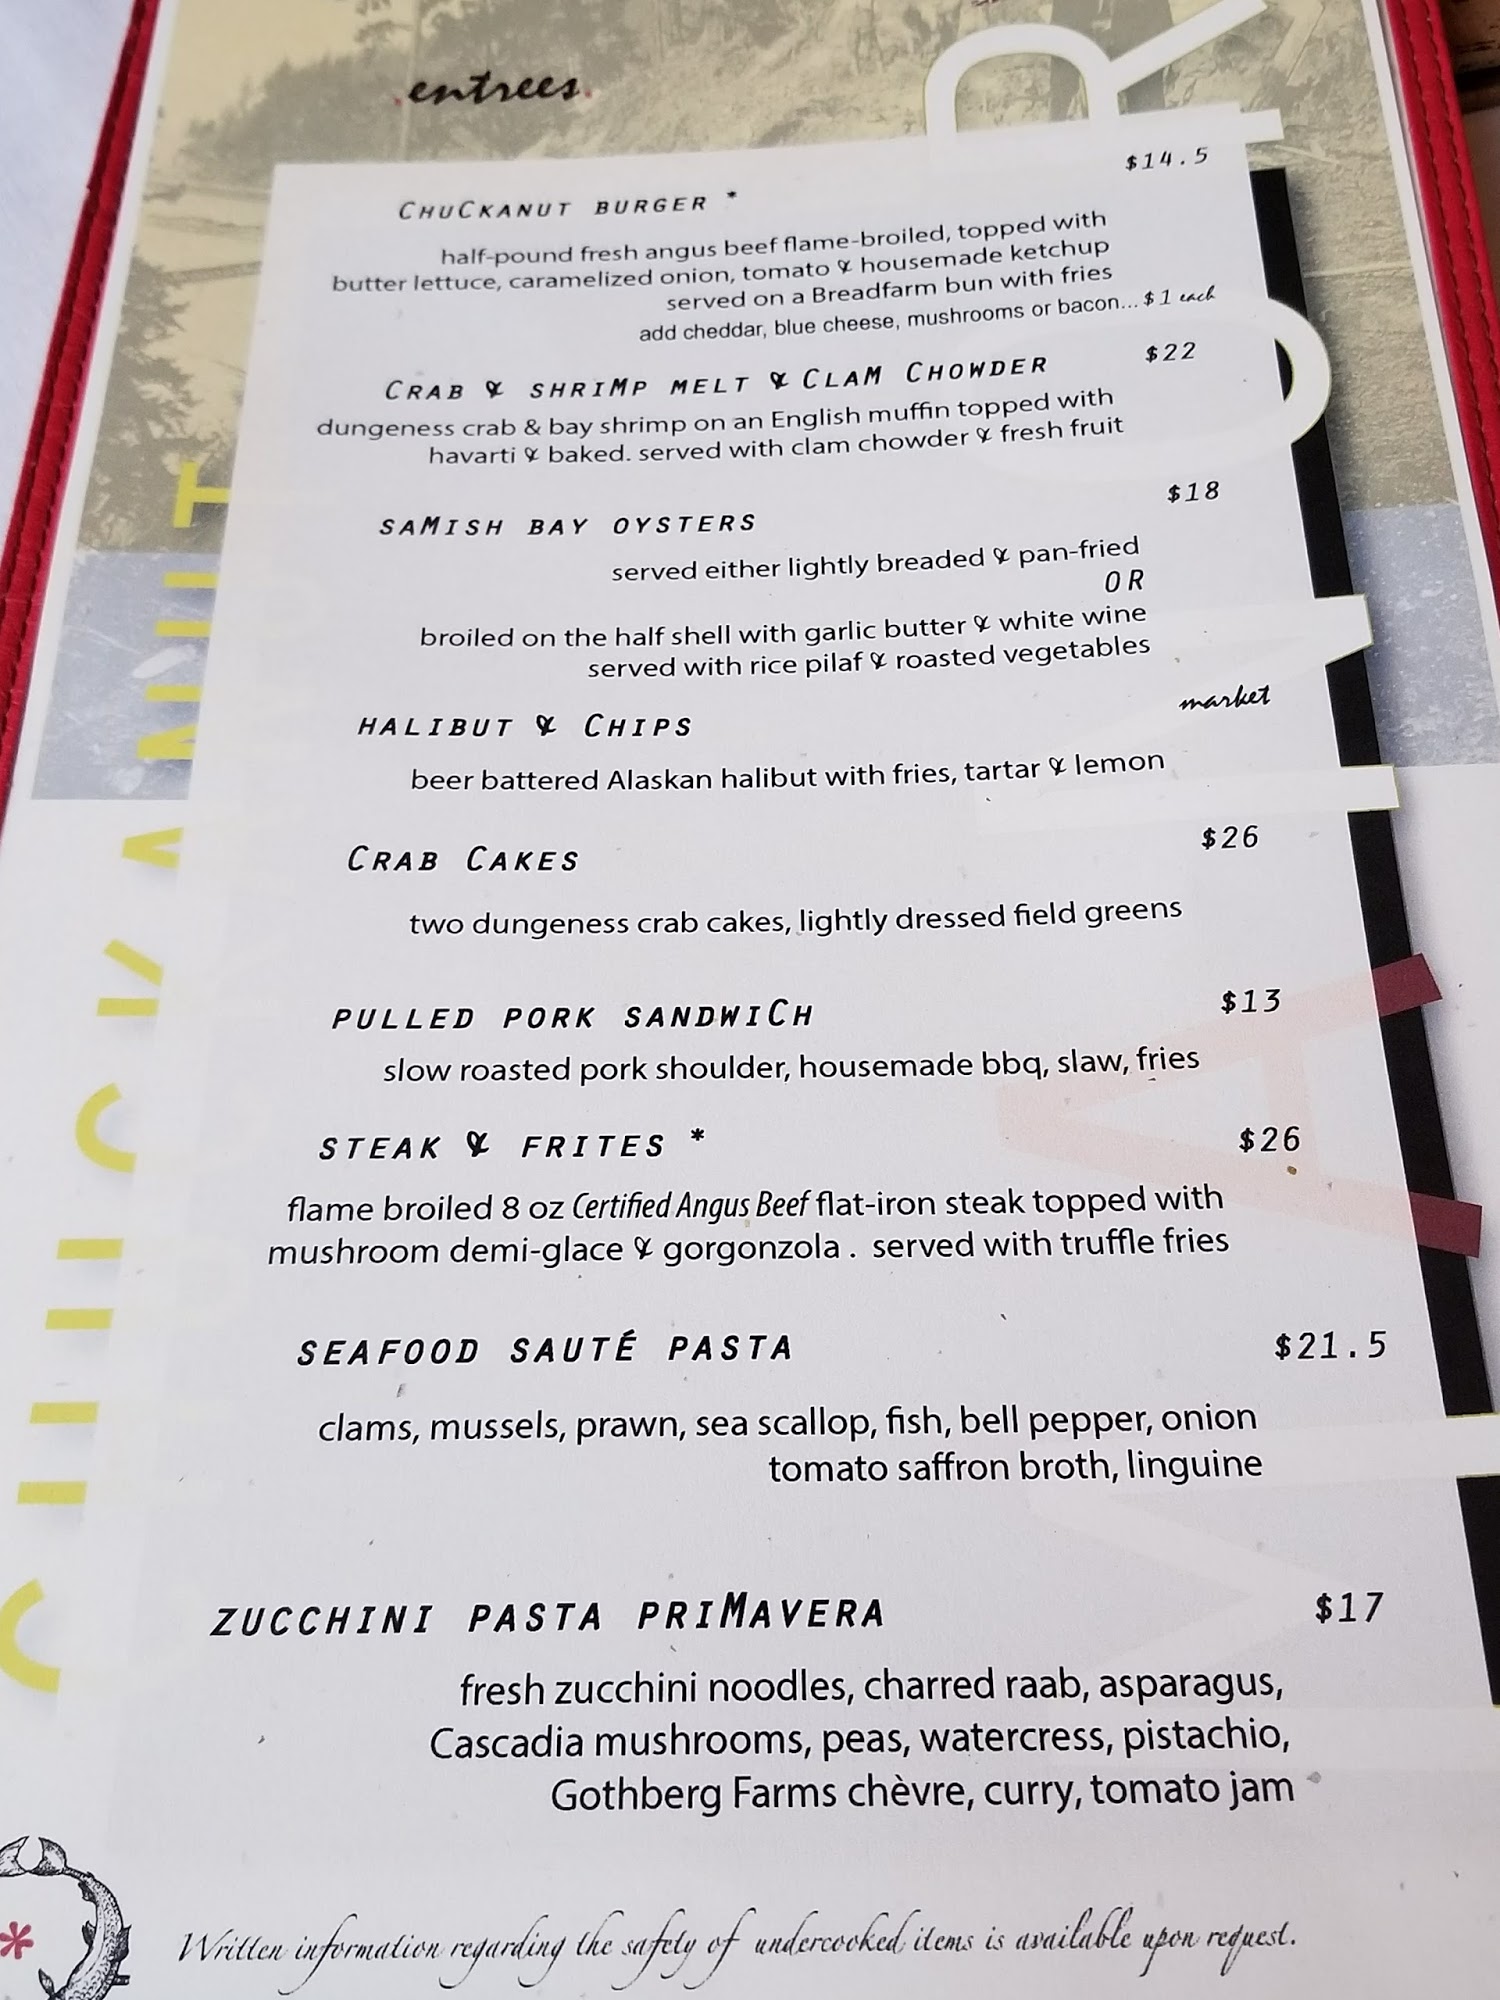 .entrees.
$14.5
CHUCKANUT BURGER *
half-pound fresh angus beef flame-broiled, topped with
butter lettuce, caramelized onion, tomato & housemade ketchup
served on a Breadfarm bun with fries
add cheddar, blue cheese, mushrooms or bacon... $1 each
CRAB & SHRIMP MELT & CLAM CHOWDER $22
dungeness crab & bay shrimp on an English muffin topped with
havarti & baked. served with clam chowder & fresh fruit
SAMISH BAY OYSTERS $18
served either lightly breaded & pan-fried
OR
broiled on the half shell with garlic butter & white wine
served with rice pilaf & roasted vegetables
HALIBUT & CHIPS market
beer battered Alaskan halibut with fries, tartar & lemon
CRAB CAKES $26
two dungeness crab cakes, lightly dressed field greens
PULLED PORK SANDWICH $13
slow roasted pork shoulder, housemade bbq, slaw, fries
STEAK & FRITES * $26
flame broiled 8 oz Certified Angus Beef flat-iron steak topped with
mushroom demi-glace & gorgonzola . served with truffle fries
SEAFOOD SAUTÉ PASTA $21.5
clams, mussels, prawn, sea scallop, fish, bell pepper, onion
tomato saffron broth, linguine
ZUCCHINI PASTA PRIMAVERA $17
fresh zucchini noodles, charred raab, asparagus,
Cascadia mushrooms, peas, watercress, pistachio,
Gothberg Farms chèvre, curry, tomato jam
* Written information regarding the safety of undercooked items is available upon request.